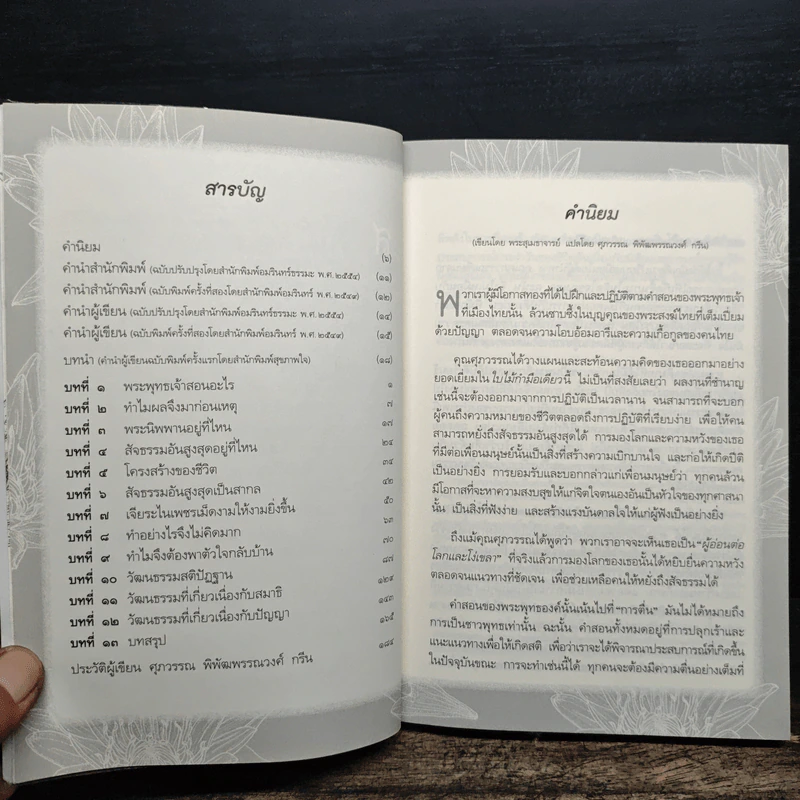 สารบัญ
คำนิยม (๖)
คำนำสำนักพิมพ์ (ฉบับปรับปรุงโดยสำนักพิมพ์อมรินทร์ธรรมะ พ.ศ.๒๕๕๔) (๑๑)
คำนำสำนักพิมพ์ (ฉบับพิมพ์ครั้งที่สองโดยสำนักพิมพ์อมรินทร์ พ.ศ.๒๕๔๙) (๑๒)
คำนำผู้เขียน (ฉบับปรับปรุงโดยสำนักพิมพ์อมรินทร์ธรรมะ พ.ศ.๒๕๕๔) (๑๔)
คำนำผู้เขียน (ฉบับพิมพ์ครั้งที่สองโดยสำนักพิมพ์อมรินทร์ พ.ศ.๒๕๔๙) (๑๕)
บทนำ (คำนำผู้เขียนฉบับพิมพ์ครั้งแรกโดยสำนักพิมพ์สุขภาพใจ) (๑๘)
บทที่ ๑ พระพุทธเจ้าสอนอะไร ๑
บทที่ ๒ ทำไมผลจึงมาก่อนเหตุ ๗
บทที่ ๓ พระนิพพานอยู่ที่ไหน ๑๗
บทที่ ๔ สัจธรรมอันสูงสุดอยู่ที่ไหน ๒๔
บทที่ ๕ โครงสร้างของชีวิต ๓๔
บทที่ ๖ สัจธรรมอันสูงสุดเป็นสากล ๔๒
บทที่ ๗ เจียระไนเพชรเม็ดงามให้งามยิ่งขึ้น ๕๐
บทที่ ๘ ทำอย่างไรจึงไม่คิดมาก ๖๓
บทที่ ๙ ทำไมจึงต้องพาตัวใจกลับบ้าน ๗๐
บทที่ ๑๐ วัฒนธรรมสติปัฏฐาน ๘๗
บทที่ ๑๑ วัฒนธรรมที่เกี่ยวเนื่องกับสมาธิ ๑๒๙
บทที่ ๑๒ วัฒนธรรมที่เกี่ยวเนื่องกับปัญญา ๑๔๓
บทที่ ๑๓ บทสรุป ๑๖๕
ประวัติผู้เขียน ศุภวรรณ พิพัฒพรรณวงศ์ กรีน ๑๘๔
คำนิยม
(เขียนโดย พระสุเมธาจารย์ แปลโดย ศุภวรรณ พิพัฒพรรณวงศ์ กรีน)
พวกเราผู้มีโอกาสทองที่ได้ไปฝึกและปฏิบัติตามคำสอนของพระพุทธเจ้า
ที่เมืองไทยนั้น ล้วนซาบซึ้งในบุญคุณของพระสงฆ์ไทยที่เต็มเปี่ยม
ด้วยปัญญา ตลอดจนความโอบอ้อมอารีและความเกื้อกูลของคนไทย
คุณศุภวรรณได้วางแผนและสะท้อนความคิดของเธอออกมาอย่าง
ยอดเยี่ยมใน ใบไม้กำมือเดียว นี้ ไม่เป็นที่สงสัยเลยว่า ผลงานที่ชำนาญ
เช่นนี้จะต้องออกมาจากการปฏิบัติเป็นเวลานาน จนสามารถที่จะบอก
ผู้คนถึงความหมายของชีวิตตลอดถึงการปฏิบัติที่เรียบง่าย เพื่อให้คน
สามารถหยั่งถึงสัจธรรมอันสูงสุดได้ การมองโลกและความหวังของเธอ
ที่มีต่อเพื่อนมนุษย์นั้นเป็นสิ่งที่สร้างความเบิกบานใจ และก่อให้เกิดปีติ
เป็นอย่างยิ่ง การยอมรับและบอกกล่าวแก่เพื่อนมนุษย์ว่า ทุกคนล้วน
มีโอกาสที่จะหาความสงบสุขให้แก่จิตใจตนเองอันเป็นหัวใจของทุกศาสนา
นั้น เป็นสิ่งที่ฟังง่าย และสร้างแรงบันดาลใจให้แก่ผู้ฟังเป็นอย่างยิ่ง
ถึงแม้คุณศุภวรรณได้พูดว่า พวกเราอาจจะเห็นเธอเป็น “ผู้อ่อนต่อ
โลกและโง่เขลา” ที่จริงแล้วการมองโลกของเธอนั้นได้หยิบยื่นความหวัง
ตลอดจนแนวทางที่ชัดเจน เพื่อช่วยเหลือคนให้หยั่งถึงสัจธรรมได้
คำสอนของพระพุทธองค์นั้นเน้นไปที่ “การตื่น” มันไม่ได้หมายถึง
การเป็นชาวพุทธเท่านั้น ฉะนั้น คำสอนทั้งหมดอยู่ที่การปลุกเร้าและ
แนะแนวทางเพื่อให้เกิดสติ เพื่อว่าเราจะได้พิจารณาประสบการณ์ที่เกิดขึ้น
ในปัจจุบันขณะ การจะทำเช่นนี้ได้ ทุกคนจะต้องมีความตื่นอย่างเต็มที่